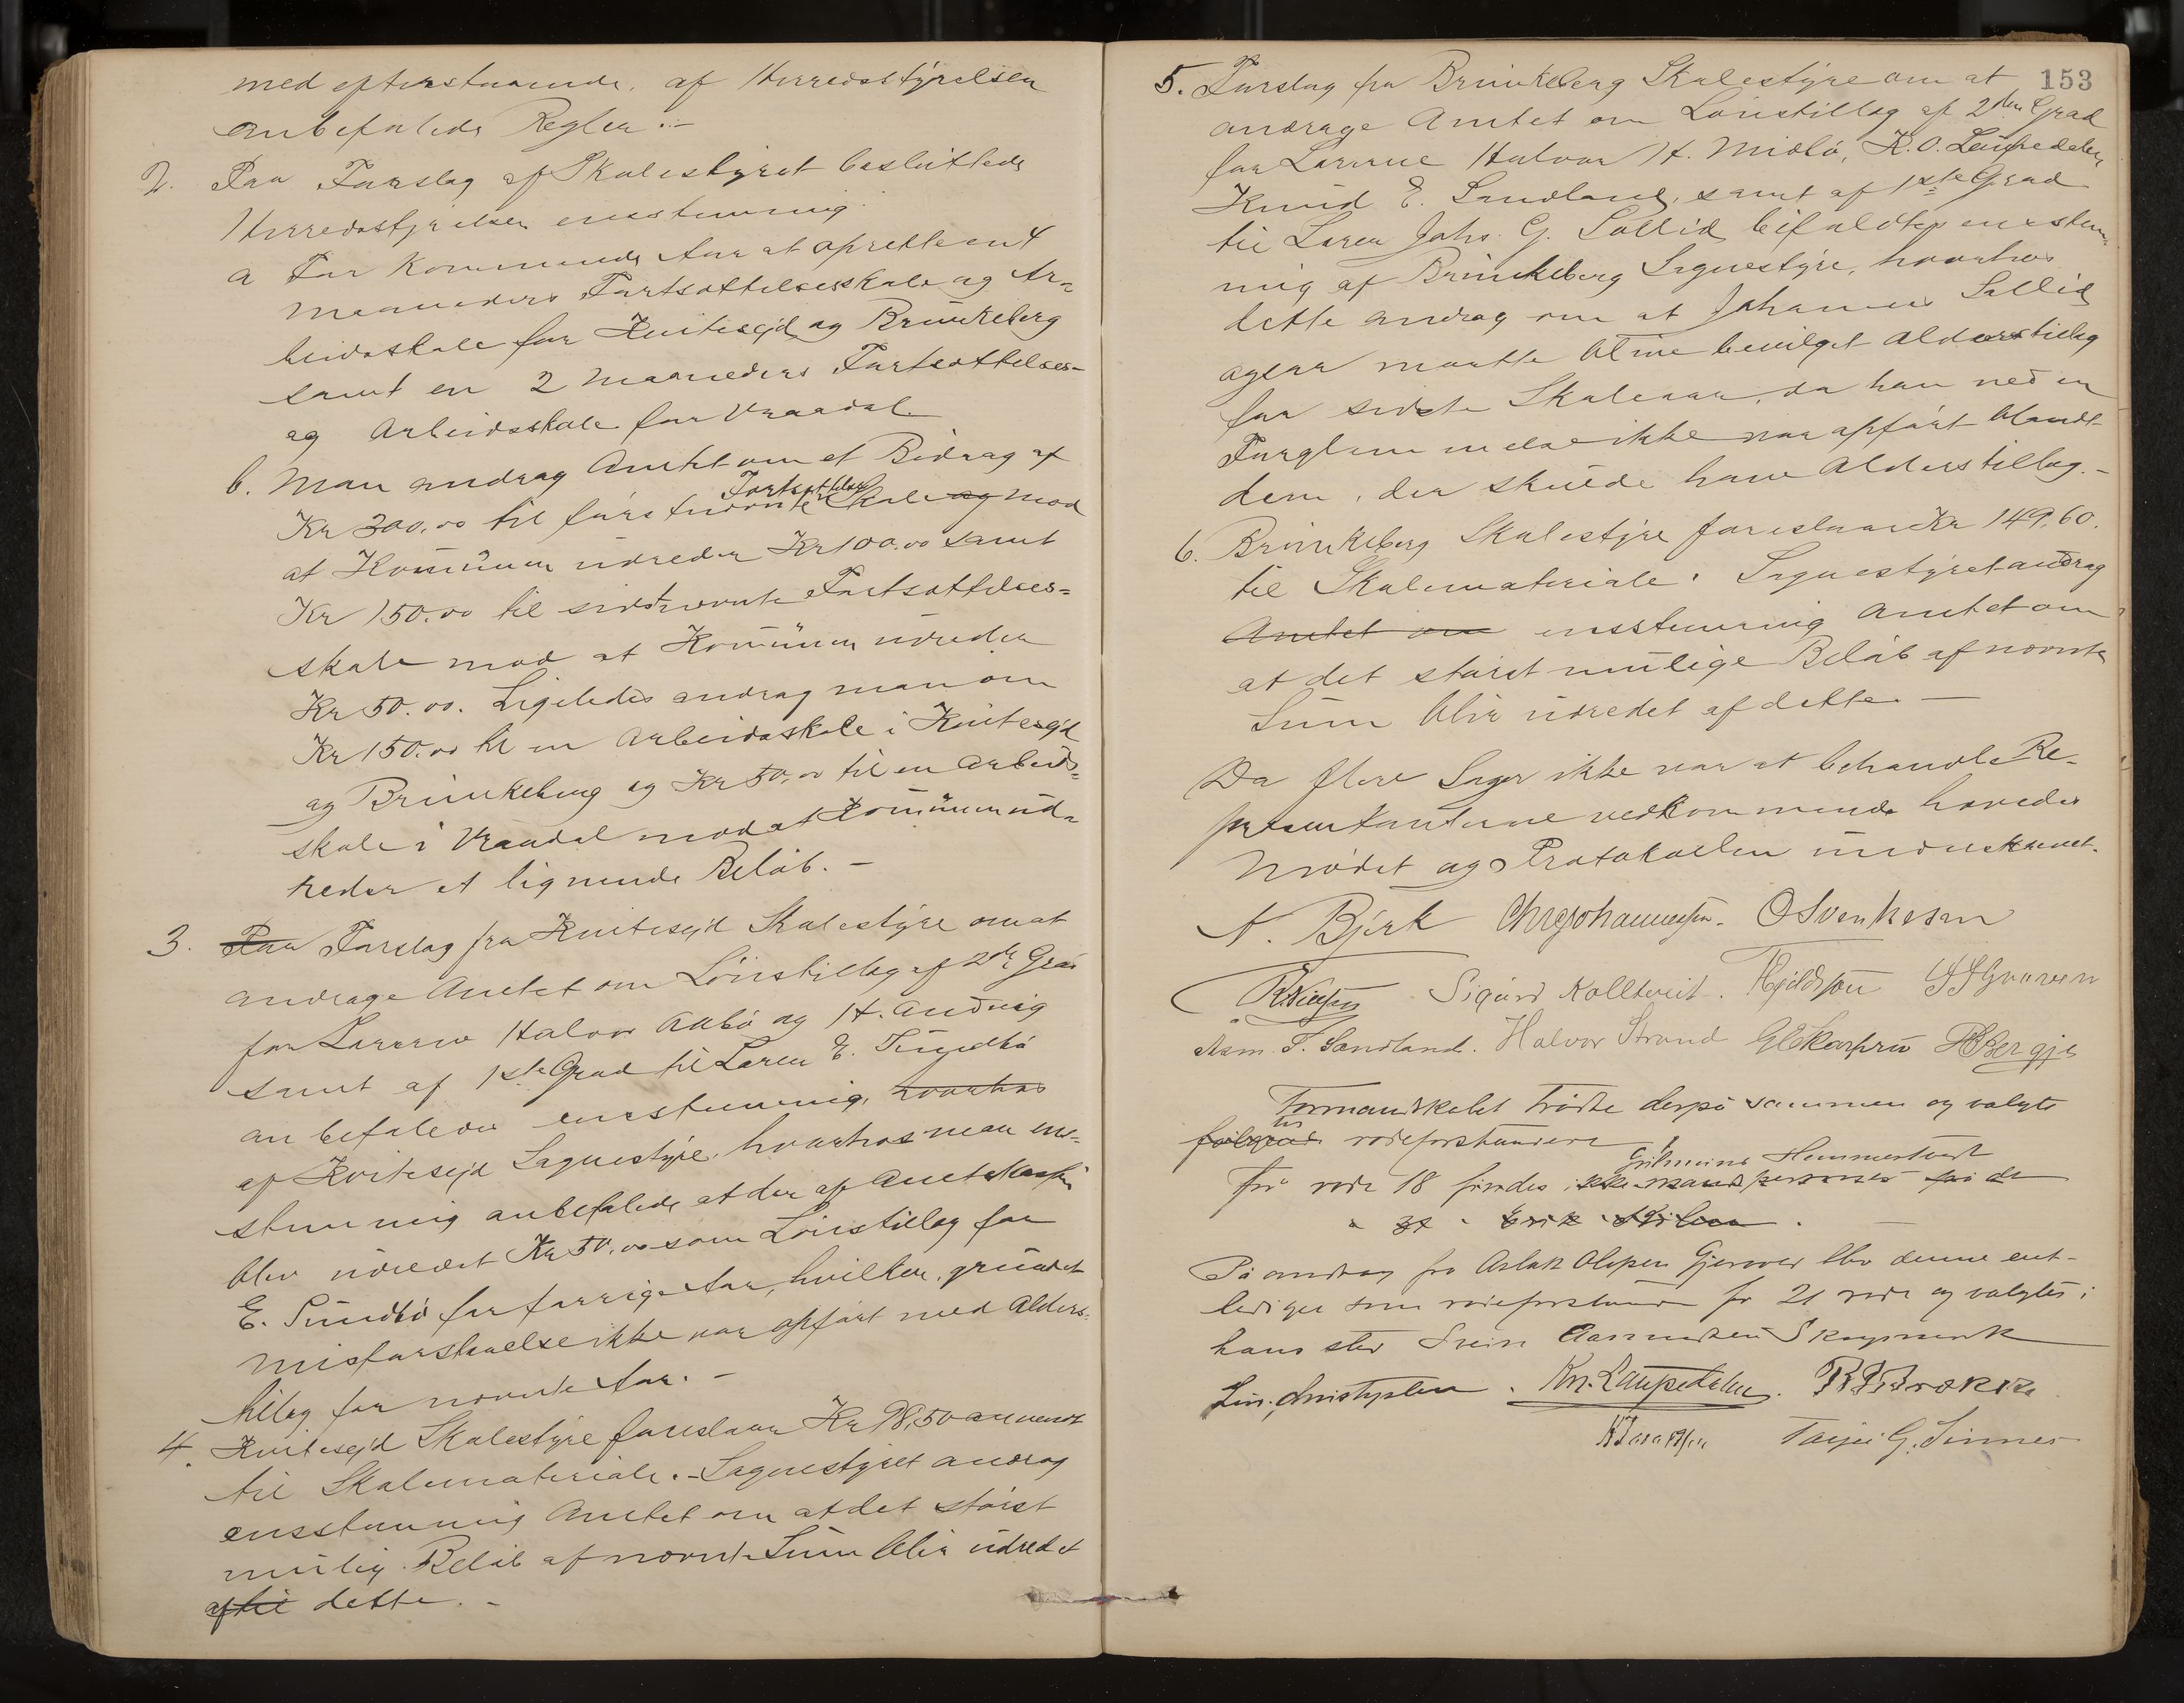 med efterstaaende, af Herredsstyrelsen
anbefalede Regler.–
2. Paa Forslag af Skolestyret besluttede
Herredsstyrelsen enstemmig
a For Kommende Aar at oprette en 4
Maaneders Fortsættelsesskole og Ar-
beidsskole for Kvitesejd og Brunkeberg
samt en 2 Maaneders Fortsættelses-
og Arbeidsskole for Vraadal.
b. Man androg Amtet om et Bidrag af
Kr 300.00 til først nævnte Fortsættelses Skole og mod
at Kommunen udreder Kr 100.00 samt
Kr 150.00 til sidstnævnte Fortsættelses-
skole mod at Kommunen udreder
Kr 50.00. Ligeledes androg man om
Kr 150.00 til en Arbeidsskole i Kvitesejd
og Brunkeberg og Kr 50.00 til en Arbeids-
skole i Vraadal mod at Kommunen ud-
reder et lignende Beløb. –
3. Paa Forslag fra Kvitesejd Skolestyre om at
andrage Amtet om Lønstillæg af 2den Grad
for Lærerne Halvor Aabø og H. Andvig
samt af 1ste Grad til Lærer E. Sundbø
anbefaledes enstemmig, hvorhos
af Kvitesejd Sognestyre, hvorhos man en-
stemmig anbefalede at der af Amtskassen
blev udredet Kr 50,00 som Lønstillæg for
E. Sundbø for forrige Aar, hvilken, grundet
Misforstaaelse ikke var opført med Alders-
tillæg for nævnte Aar. –
4. Kvitesejd Skolestyre foreslaar Kr 98,50 anvendt
til Skolemateriale. – Sognestyret androg
enstemmig Amtet om at det størst
mulig Beløb af nævnte Sum blir udredet
af til dette. –
153
5. Forslag fra Brunkeberg Skolestyre om at
andrage Amtet om Lønstillæg af 2den Grad
for Lærerne Halvor H. Midbø, K. O. Laupedalen
Knud E. Sandland, samt af 1ste Grad
til Lærer Johs. G. Sollid bifaldtes enstem-
mig af Brunkeberg Sognestyre, hvorhos
dette androg om at Johannes Sollid
ogsaa maatte blive bevilget Alderstillæg
for sidste Skoleaar, da han ved en
Forglemmelse ikke var opført blandt
dem, der skulde have Alderstillæg. –
6. Brunkeberg Skolestyre foreslaar Kr 149,60.
til Skolemateriale. Sognestyret androg
Amtet om enstemmig Amtet om
at det størst mulige Beløb af nævnte
Sum blir udredet af dette. –
Da flere Sager ikke var at behandle Re-
præsentanterne vedkommende hævedes
Mødet og Protokollen underskrevet.
A. Bjørk Chr Johannessen. O Svenksen
R. Nielsen Sigurd Kolltveit.
Asm. T. Sandland. Halvor Strand
Formandskabet trådte derpå sammen og valgte
følgende rodeforstandere
For rode 18 findes ikke mandspersoner
Grikmund Hemmestveit
På andrag fra Aslak Olsen Gjerover blev denne ent-
lediget som rodeforstander for 21 rode og valgtes i
hans sted Svein Aasmundsen Skogmark
Kn. Laupedalen.
Tarjei G. Sinnes